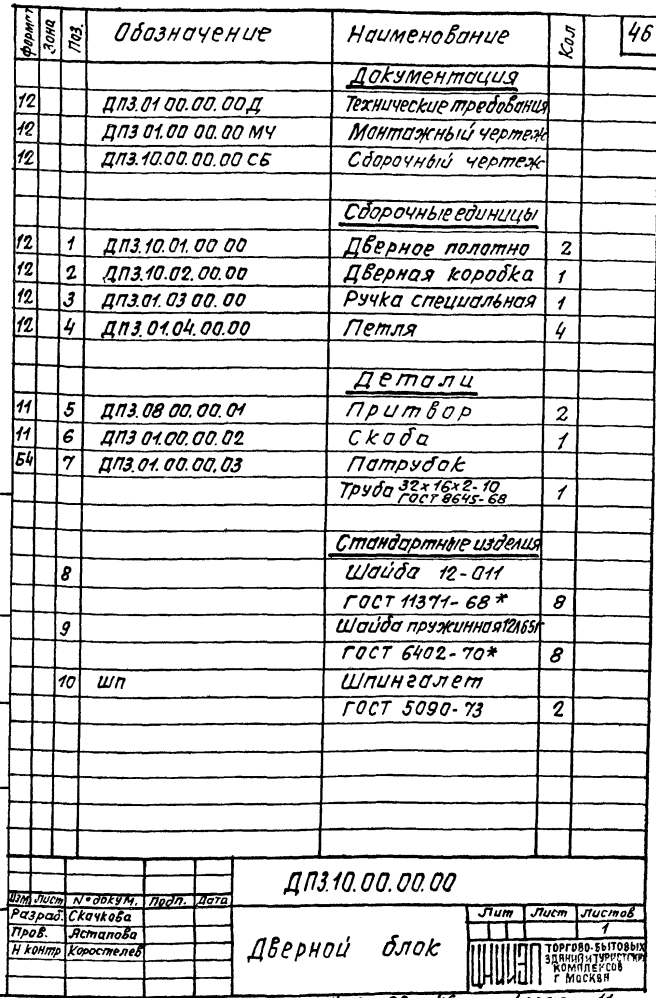 формат Зона Поз. Обозначение Наименование Кол 46
Документация
12 ДП3.01 00.00.00Д Технические требования
12 ДП3 01.00 00.00 МЧ Монтажный чертеж
12 ДП3.10.00.00.00 СБ Сборочный чертеж
Сборочные единицы
12 1 ДП3.10.01.00 00 Дверное полотно 2
12 2 ДП3.10.02.00.00 Дверная коробка 1
12 3 ДП3.01.03 00.00 Ручка специальная 1
12 4 ДП3.01.04.00.00 Петля 4
Детали
11 5 ДП3.08 00.00.01 Притвор 2
11 6 ДП3 01.00.00.02 Скоба 1
Б4 7 ДП3.01.00.00.03 Патрубок
Труба 32х16х2-10 ГОСТ 8645-68 1
Стандартные изделия
8 Шайба 12-011
ГОСТ 11371-68* 8
9 Шайба пружинная 12Л65Г
ГОСТ 6402-70* 8
10 ШП Шпингалет
ГОСТ 5090-73 2
ДП3.10.00.00.00
Изм Лист №докум. Подп. Дата
Разраб. Скачкова
Пров. Астапова
Н контр Коростелев
Дверной блок
Лит Лист Листов
1
ЦНИИЭП ТОРГОВО-БЫТОВЫХ
ЗДАНИЙ И ТУРИСТСКИХ
КОМПЛЕКСОВ
Г МОСКВА